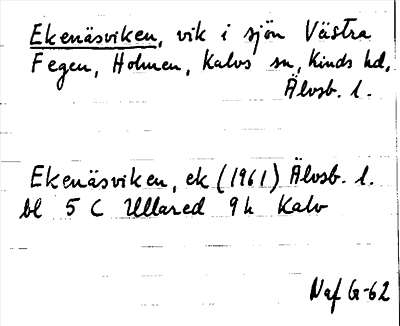 Ekenäsviken, vik i sjön Västra
Fegen, Holmen, Kalvs sn, Kinds hd,
Älvsb. l.
Ekenäsviken, ek (1961) Älvsb. l.
bl 5 C Ullared 9 h Kalv
Naf G-62